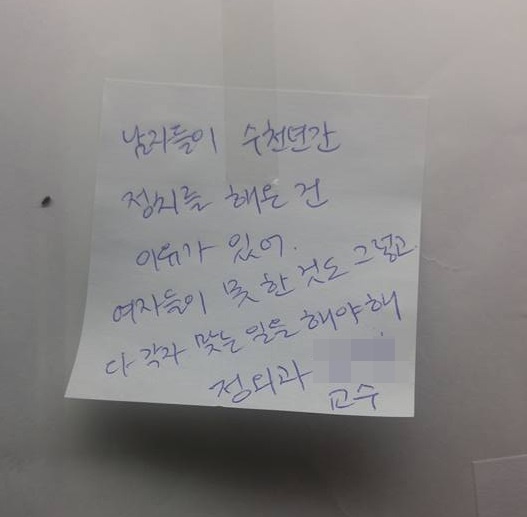 남자들이 수천년간
정치를 해온 건
이유가 있어.
여자들이 못 한 것도 그렇고
다 각자 맞는 일을 해야 해
정외과
교수